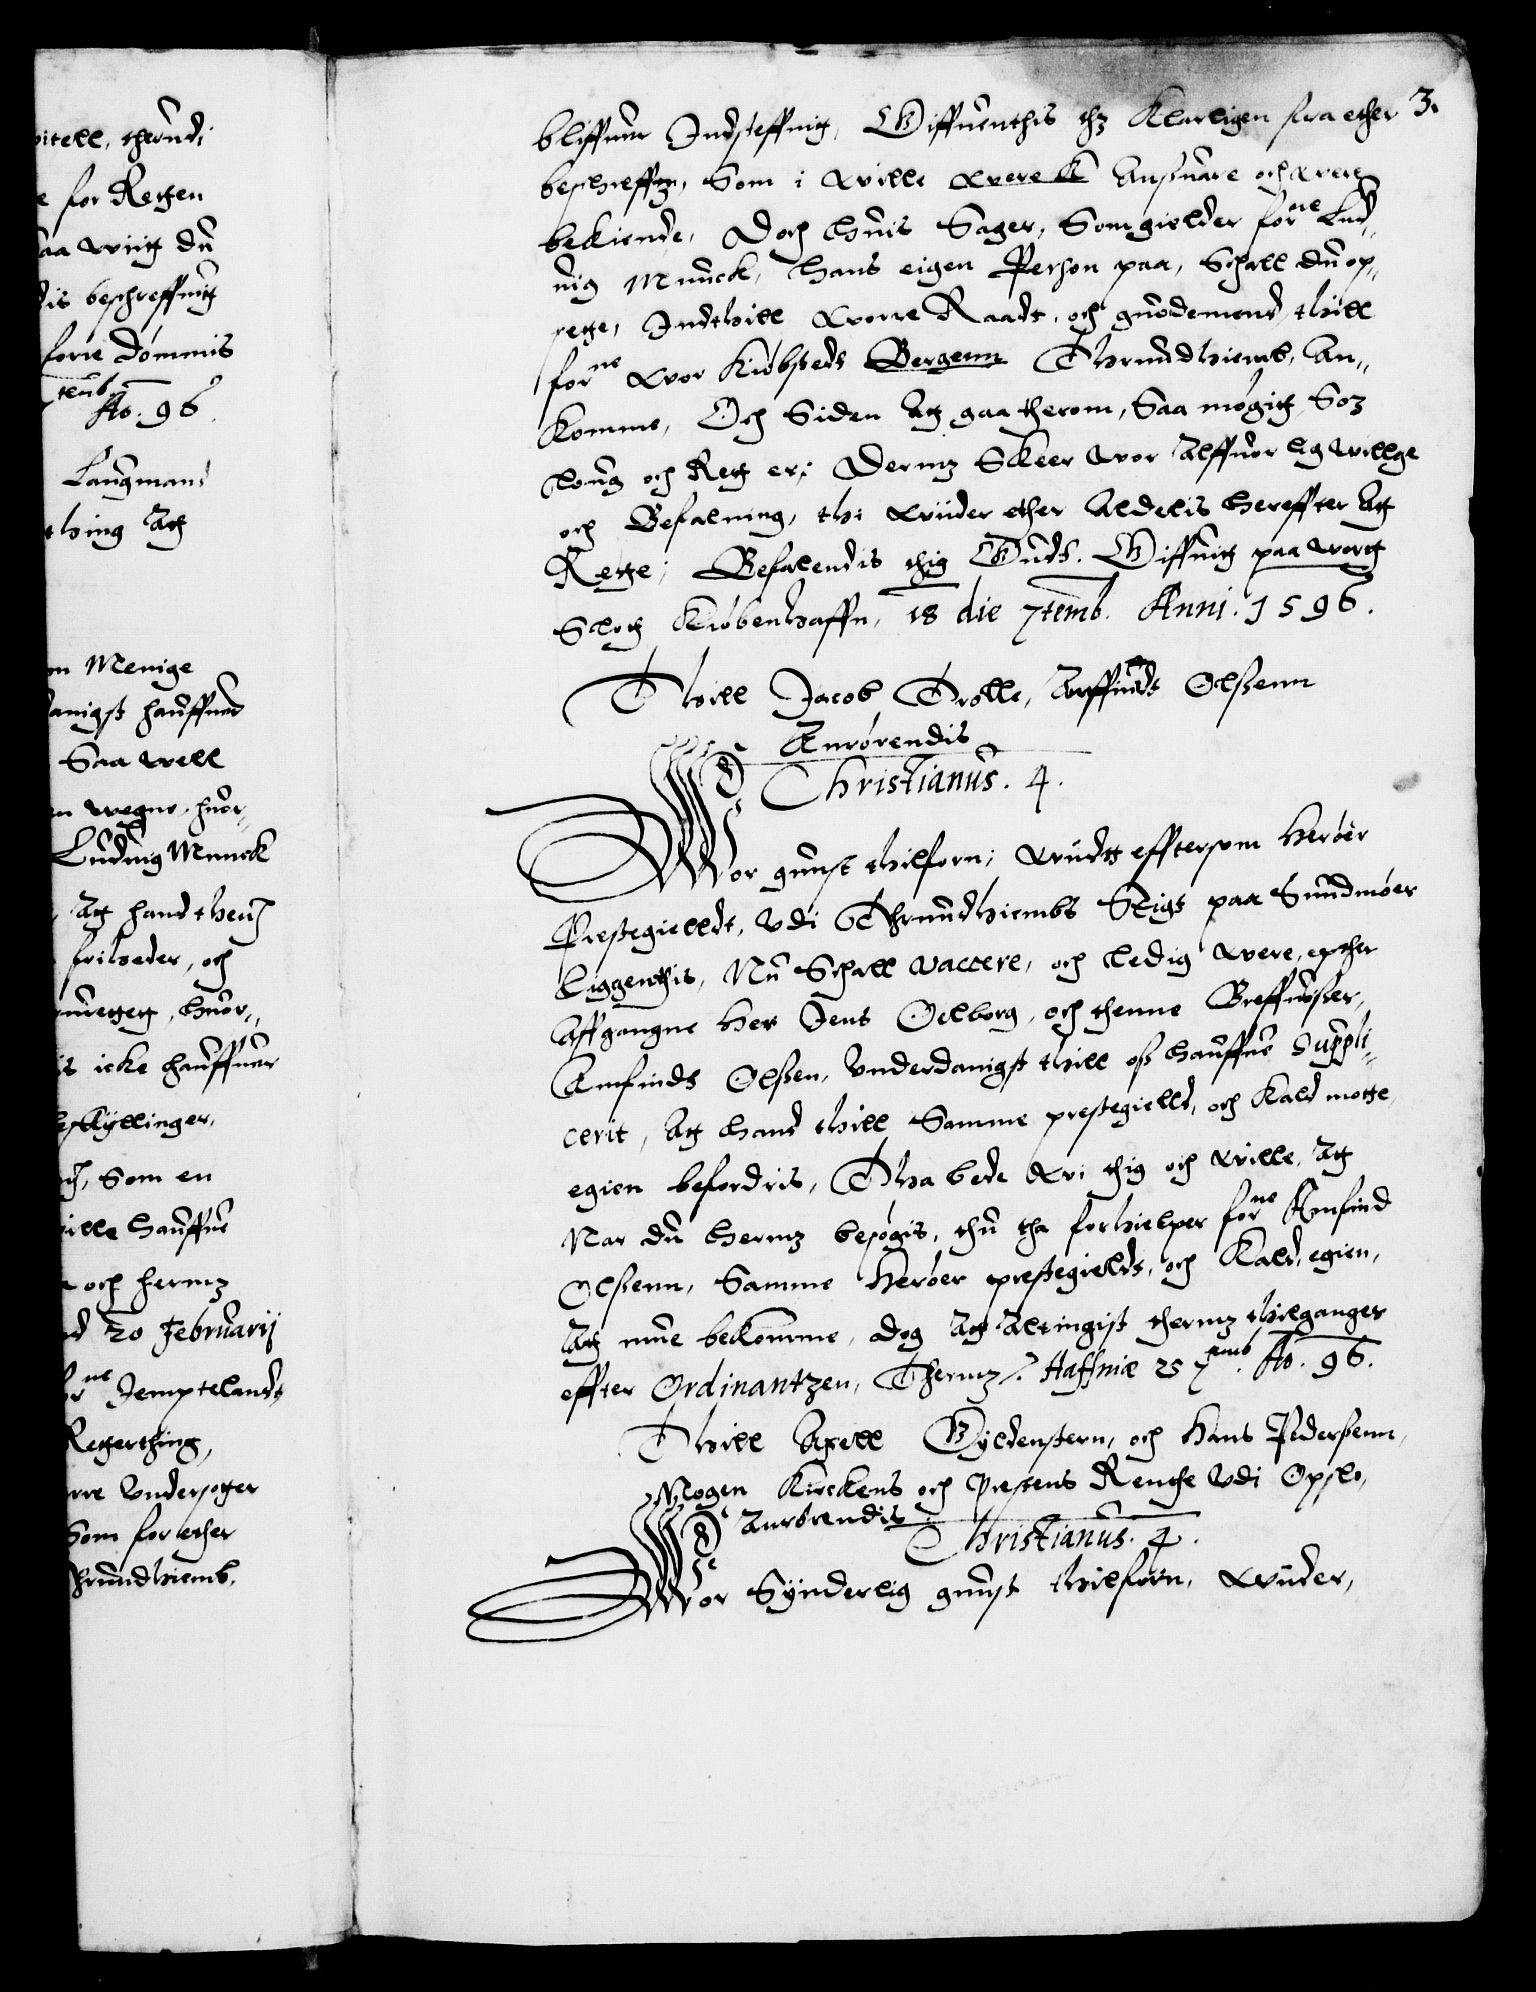 pitell, therudi
e for Retten
saa wiit du
dis beschreffuit
forne Dømmis
temb. Ao. 96.
Laugmand
thing At
m Menige
danigst hauffuer
Saa well
en wegne, huor,,
Ludwig Munck
At hand then
friheder, och
huor,,
is icke hauffuer
skyllinger,
Som en
wille hauffue
och hermz
20 Februarij
forne Jempteland,
Retterthing,
Vndersøger
Som for ether
Thrundhiemb.
3.
bliffuer Indsteffnit, Giffuenthis thz Klarligen fra ether
beschreffz, Som i wille were Ansuare och were
bekiende, Doch huis Sager, Som gielder forne Lud,,
uig Munck, hans eigen Person paa, Schall du op,,
sette, Indthill worre Raadt, och guodemend, thill
forne wor Kiøbsted Bergenn Thrundhiemb, An,,
komme, Och Siden At gaa therom, Saa møgit, Soz
loug och Ret er; Dermz Skeer wor Alffuorlig willge
och Befalning, thi wiider ether Aldelis hereffter At
Rette; Befalendis thig Gudt. Giffuit paa wort
Slot Kiøbenhaffn, 18 die 7temb. Anni. 1596.
Thill Jacob Trolle, Anffindt Olssenn
Anrørendis
Christianus. 4.
Wor gunst thilforn; wiidt effter som Herøer
Prestegielldt, Vdi Thrundhiembs Stigt paa Sundmøer
liggenthis, Nu Schall vaccere, och ledig were, epther
Affgangne Her Jens Oelborg, och thenne Breffuisser,
Amfindt Olssen, Vnderdanigst thill oss hauffue Suppli,,
cerit, At hand thill Samme prestegielld, och Kald motte,
egien befordris, Tha bede wi thig och wille, At
Nar du hermz besøgis, thu tha forhielper forne Amfind
Olssenn, Samme Herøer prestegieldt, och Kald, egien,
At mue bekomme, dog At Altingist thermz thilganger
effter Ordinantzen, Thermz. Haffniæ 25 7emb. Ao. 96.
Thill Axell Gyldenstern, och Hans Pederssenn,
Nogen Kirckens och Prestens Renthe Vdi Opslo,
Anrørendis
Christianus. 4.
Wor Synderlig gunst thilforn, wiider,